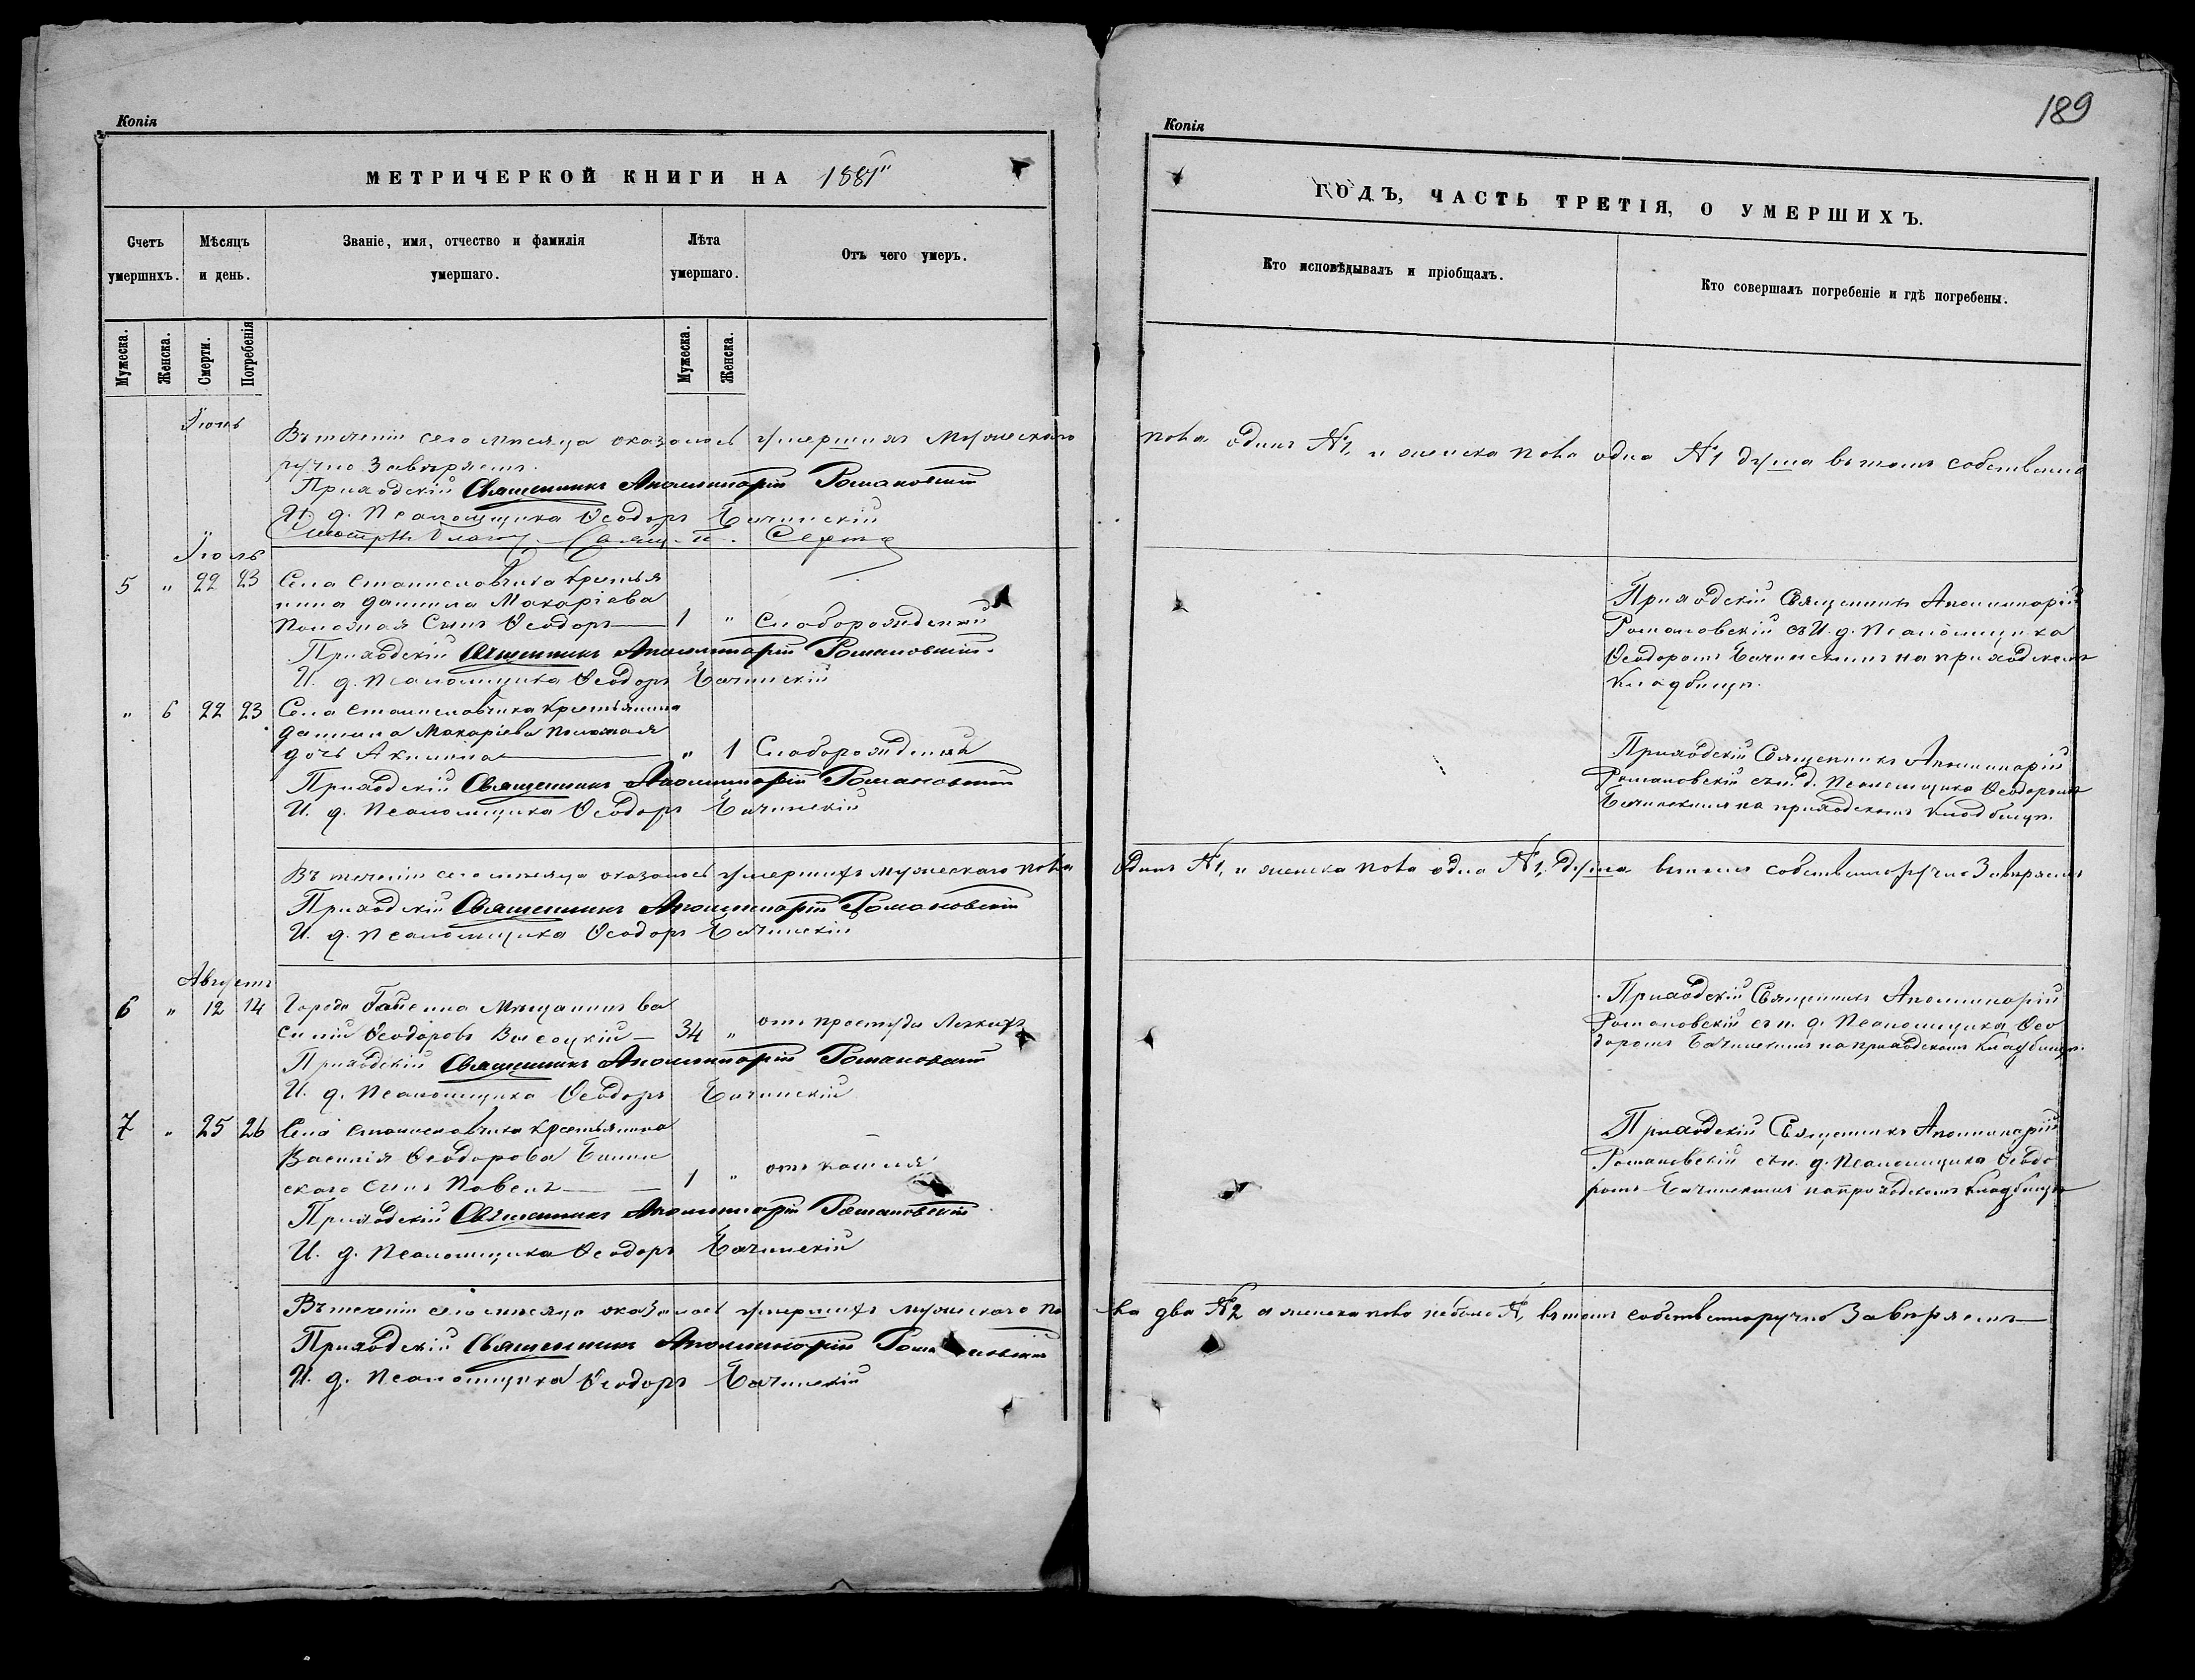 Копія
МЕТРИЧЕРКОЙ КНИГИ НА 1881
Счетъ умершихъ.
Мѣсяцъ и день.
Званіе, имя, отчество и фамилія умершаго.
Лѣта умершаго.
Отъ чего умеръ.
Мужеска.
Женска.
Смерти.
Погребенія
Мужеска.
Женска.
Іюнь
Въ теченіи сего мѣсяца оказалось умершихъ мужескаго
ручно завѣряемъ.
Приходскій Священникъ Аполлинарій Романовскій
И. д. Псаломщика Ѳеодоръ Бачинскій
Іюль
5 " 22 23 Села Станиславчика крестья
нина Даніила Макаріева
сынъ Ѳеодоръ — 1 " Слаборожденный
Приходскій Священникъ Аполлинарій Романовскій
И. д. Псаломщика Ѳеодоръ Бачинскій
" 6 22 23 Села Станиславчика крестьянина
Даніила Макаріева
дочь Акилина — " 1 Слаборожденна
Приходскій Священникъ Аполлинарій Романовскій
И. д. Псаломщика Ѳеодоръ Бачинскій
Въ теченіи сего мѣсяца оказалось умершихъ мужескаго пола
Приходскій Священникъ Аполлинарій Романовскій
И. д. Псаломщика Ѳеодоръ Бачинскій
Августъ
6 " 12 14 Города Гайсина мѣщанинъ Ва
силій Ѳеодоровъ Высоцкій — 34 " отъ простуды легкихъ
Приходскій Священникъ Аполлинарій Романовскій
И. д. Псаломщика Ѳеодоръ Бачинскій
7 " 25 26 Села Станиславчика крестьянина
Василія Ѳеодорова
скаго сынъ Павелъ — 1 " отъ кашля
Приходскій Священникъ Аполлинарій Романовскій
И. д. Псаломщика Ѳеодоръ Бачинскій
Въ теченіи сего мѣсяца оказалось умершихъ мужескаго по
Приходскій Священникъ Аполлинарій Романовскій
И. д. Псаломщика Ѳеодоръ Бачинскій
189
Копія
ГОДЪ, ЧАСТЬ ТРЕТІЯ, О УМЕРШИХЪ.
Кто исповѣдывалъ и пріобщалъ.
Кто совершалъ погребеніе и гдѣ погребены.
пола одинъ №1, и женска пола одна №1 душа въ томъ собственно
Приходскій Священникъ Аполлинарій
Романовскій съ И. д. Псаломщика
Ѳеодоромъ Бачинскимъ на приходскомъ
кладбищѣ.
Приходскій Священникъ Аполлинарій
Романовскій съ и. д. Псаломщика Ѳеодоромъ
Бачинскимъ на приходскомъ кладбищѣ.
одинъ №1, и женска пола одна №1, душа въ томъ собственноручно завѣряемъ
Приходскій Священникъ Аполлинарій
Романовскій съ и. д. Псаломщика Ѳео
доромъ Бачинскимъ на приходскомъ кладбищѣ.
Приходскій Священникъ Аполлинарій
Романовскій съ и. д. Псаломщика Ѳеодо
ромъ Бачинскимъ на приходскомъ кладбищѣ
ла два №2 а женска пола небыло №, въ томъ собственноручно завѣряемъ